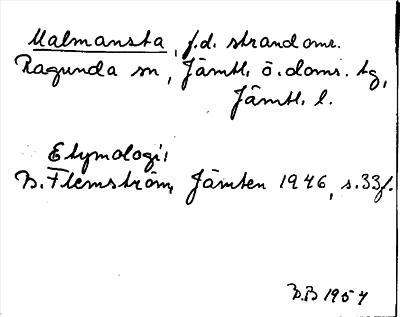 Malmansta, f.d. strandomr.
Ragunda sn, Jämtl. ö. doms. tg,
Jämtl. l.
Etymologi:
B. Flemström, Jämten 1946, s. 33f.
B.B 1957